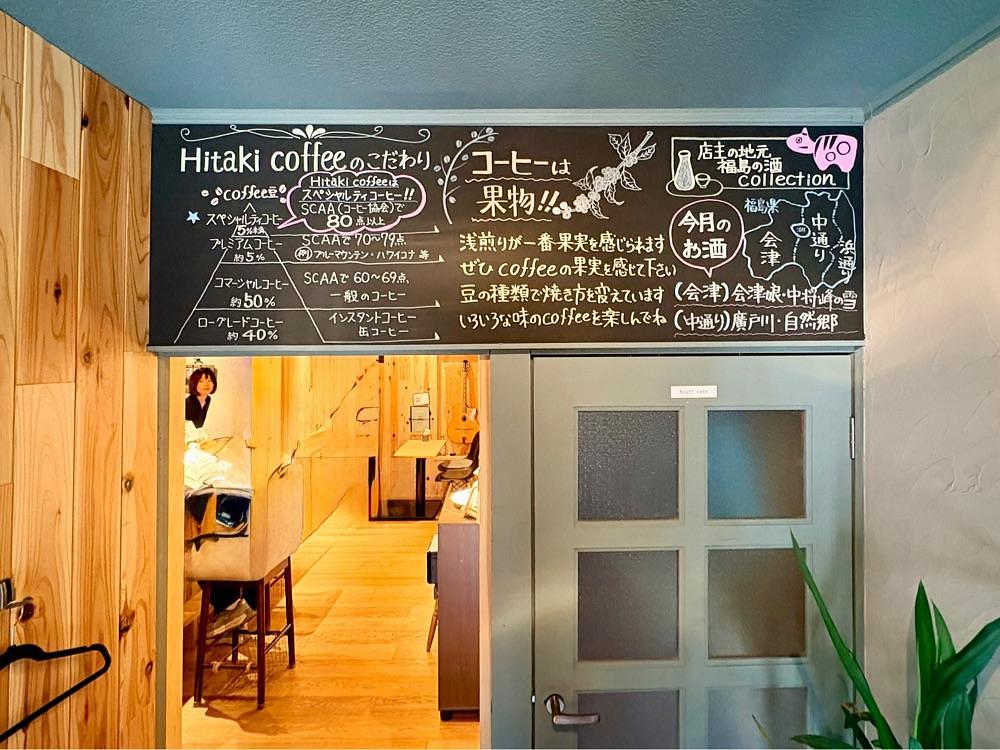 Hitaki coffeeのこだわり
coffee豆
Hitaki coffeeは
スペシャルティコーヒー!!
SCAA(コーヒー協会)で
80点以上
スペシャルティコーヒー
5%未満
プレミアムコーヒー
約5%
SCAAで70~79点
ブルーマウンテン・ハワイコナ 等
コマーシャルコーヒー
約50%
SCAAで 60~69点
一般のコーヒー
ローグレードコーヒー
約40%
インスタントコーヒー
缶コーヒー
コーヒーは
果物!!
浅煎りが一番果実を感じられます
ぜひ coffeeの果実を感じて下さい
豆の種類で焼き方を変えています
いろいろな味のcoffeeを楽しんでね
店主の地元
福島の酒
collection
今月の
お酒
福島県
会津
中通り
浜通り
(会津)会津娘・中将峰の雪
(中通り)廣戸川・自然郷